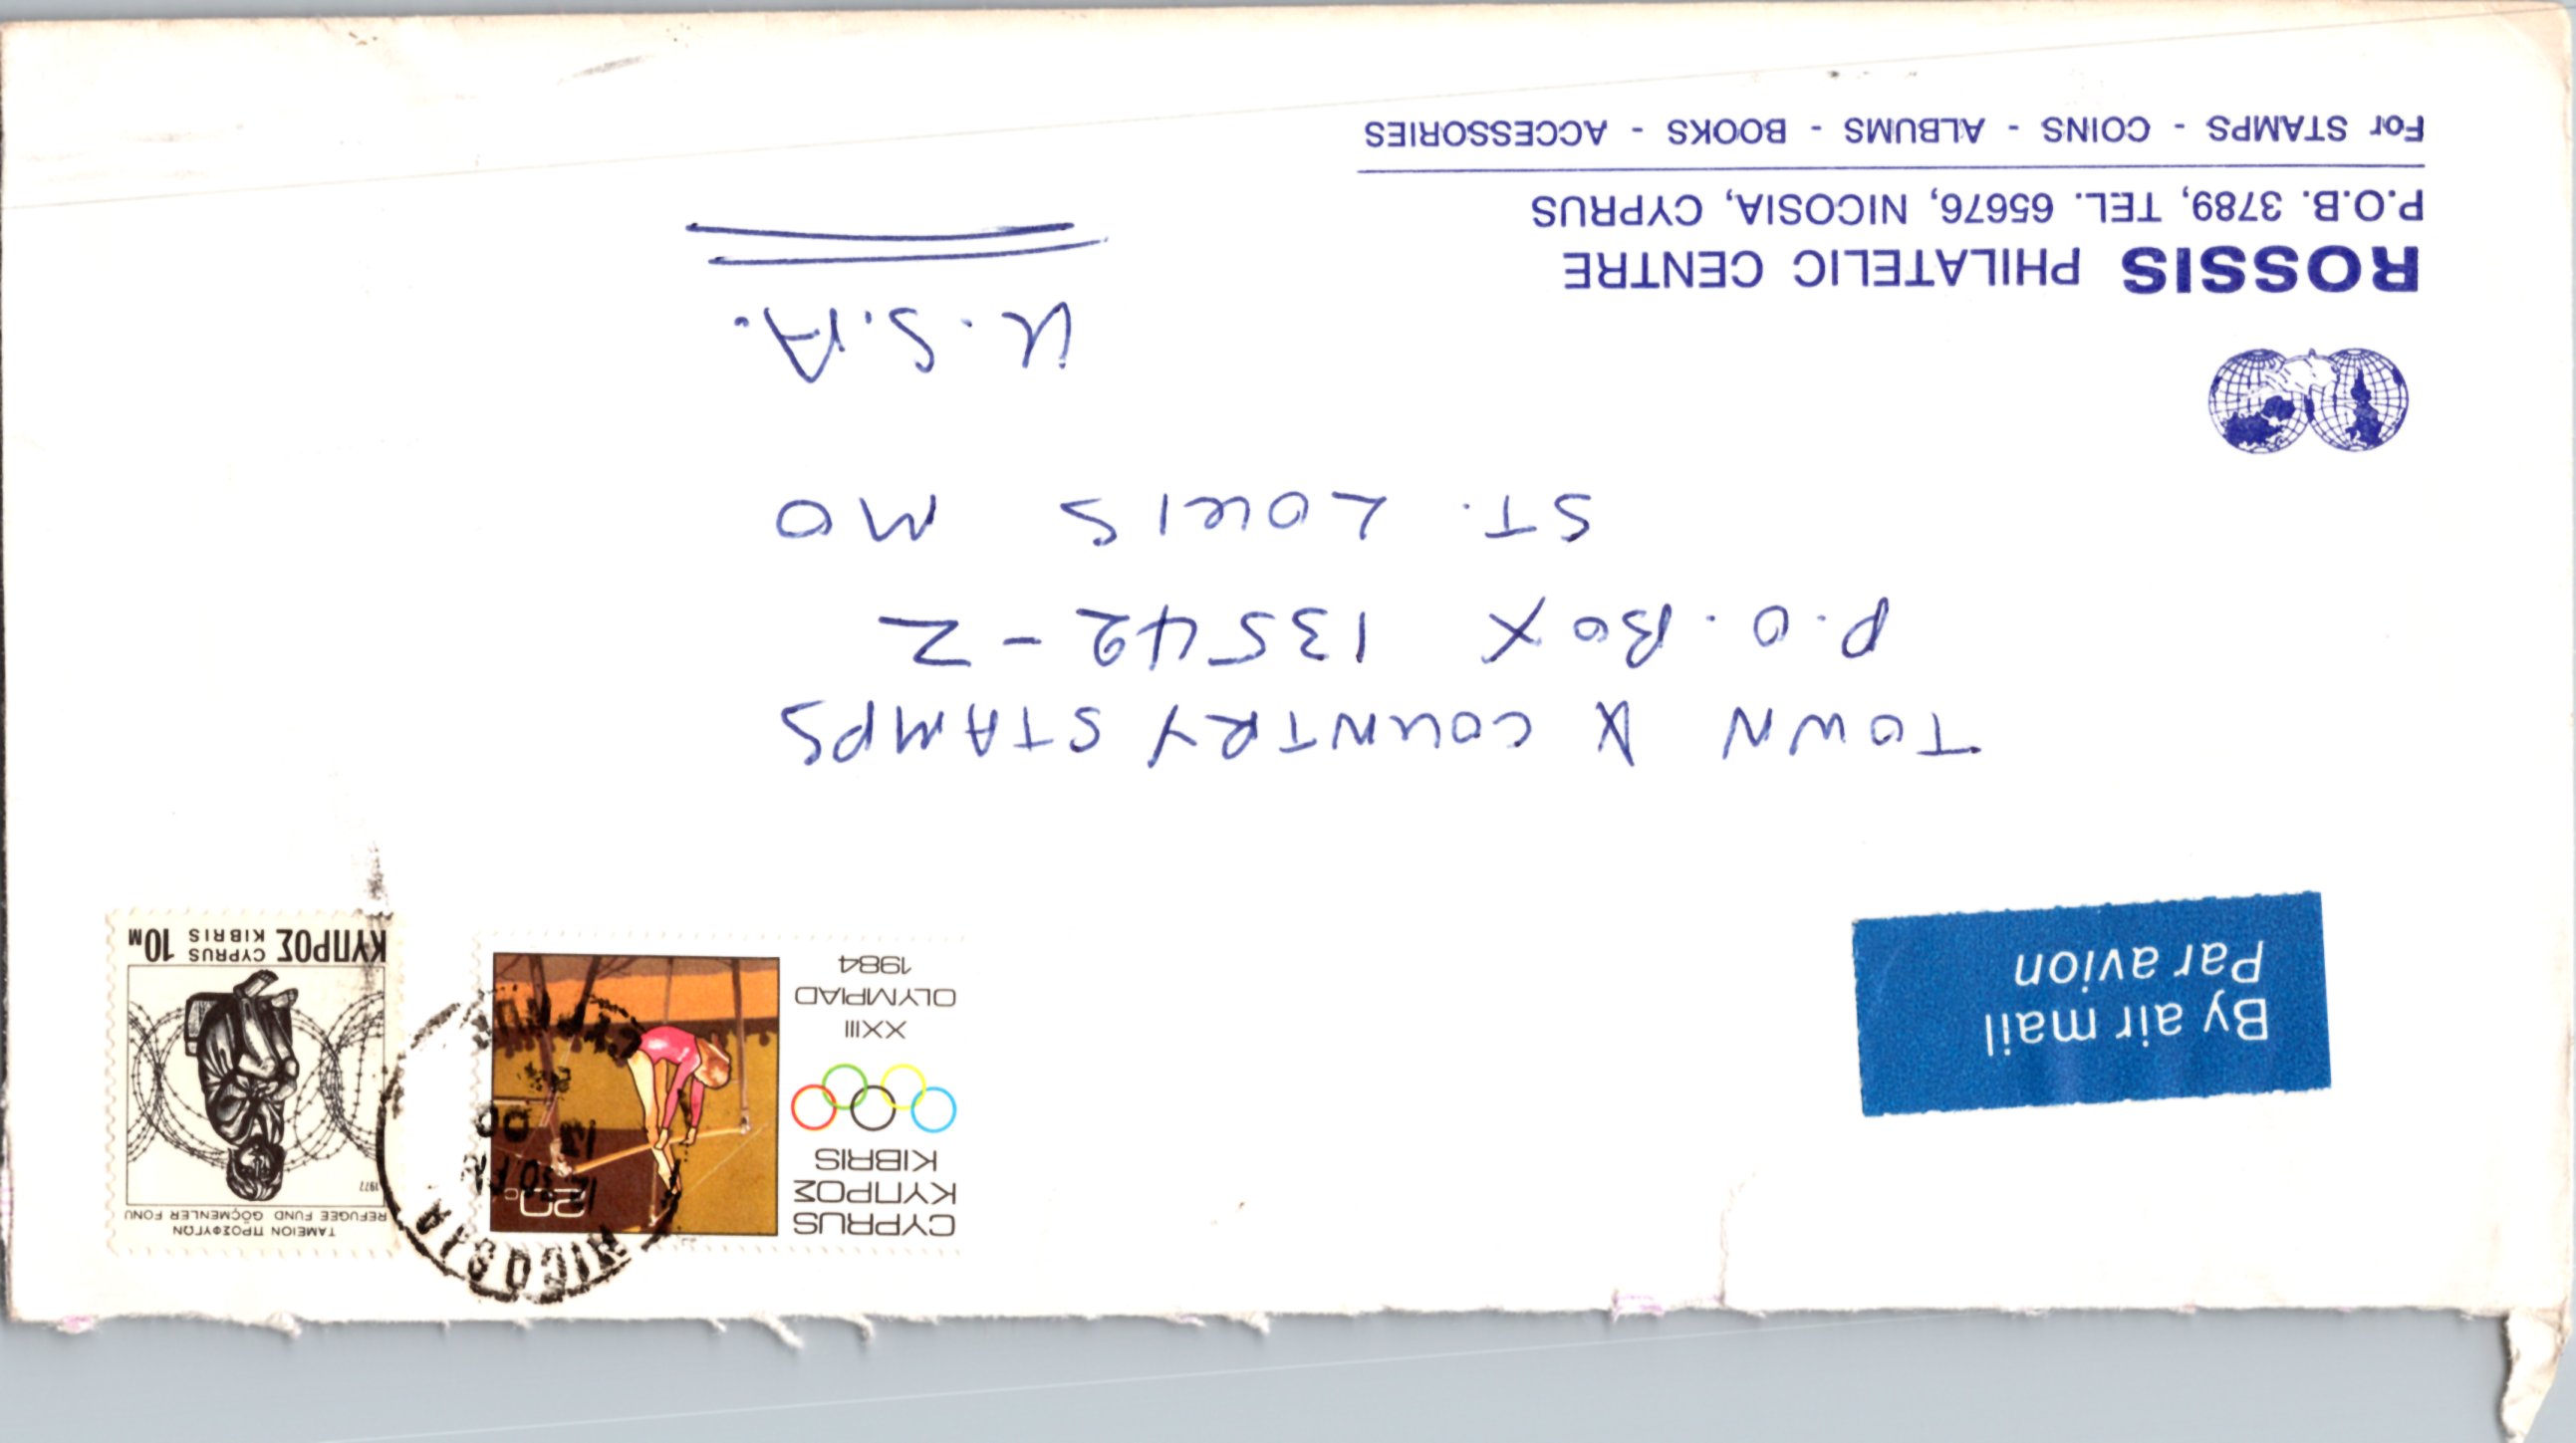 By air mail
Par avion
CYPRUS
ΚΥΠΡΟΣ
KIBRIS
XXIII
OLYMPIAD
1984
20c
ΤΑΜΕΙΟΝ ΠΡΟΣΦΥΓΩΝ
REFUGEE FUND GÖÇMENLER FONU
1977
ΚΥΠΡΟΣ CYPRUS KIBRIS 10M
NICOSIA
12.30 PM
CYPRUS
TOWN & COUNTRY STAMPS
P.O. BOX 13542-Z
ST. LOUIS MO
U.S.A.
ROSSIS PHILATELIC CENTRE
P.O.B. 3789, TEL. 65676, NICOSIA, CYPRUS
For STAMPS - COINS - ALBUMS - BOOKS - ACCESSORIES